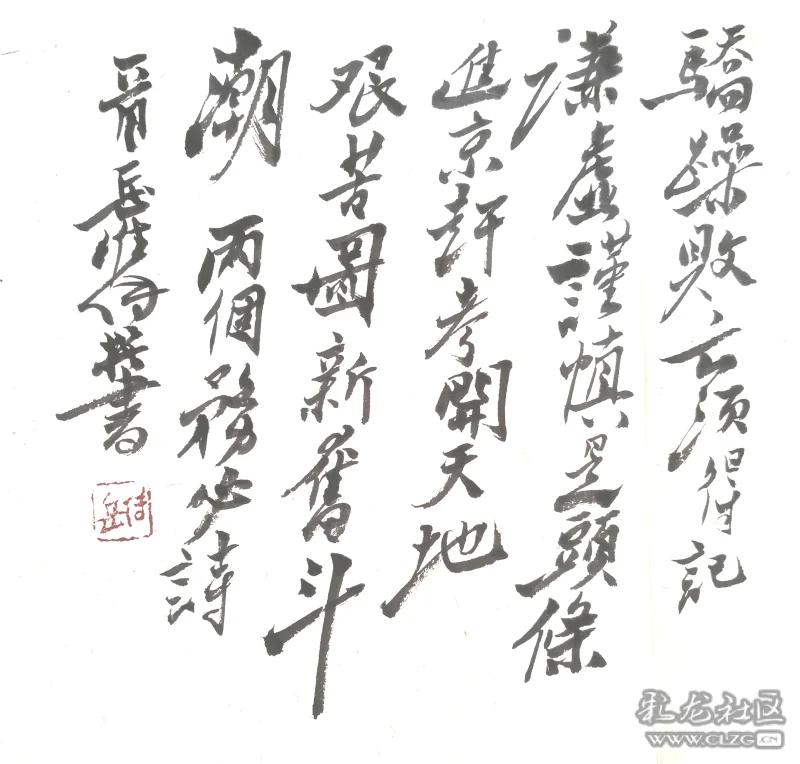 驕躁敗亡須得記
謙虛謹慎是頭條
進京赶考開天地
艰苦圖新奮斗
潮 兩個務必詩
岳 撰書
彩龙社区
WWW.CLZG.CN